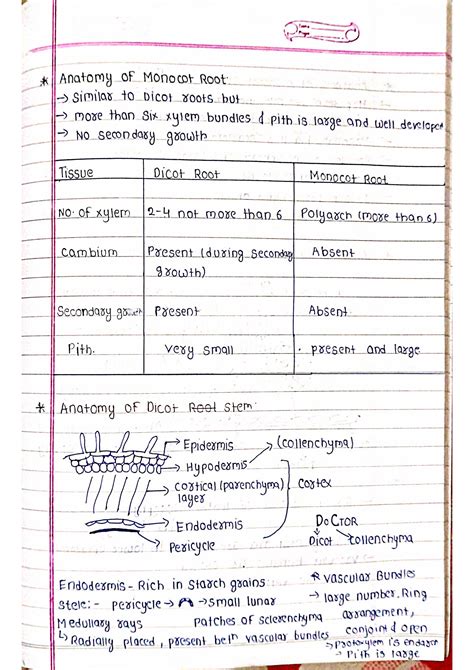 * Anatomy of Monocot Root
→ Similar to Dicot roots but
→ more than six xylem bundles & Pith is large and well developed
→ No secondary growth
Tissue Dicot Root Monocot Root
No. of xylem 2-4 not more than 6 Polyarch (more than 6)
Cambium Present (during secondary growth) Absent
Secondary growth Present Absent
Pith. very small present and large
* Anatomy of Dicot Root Stem
→ Epidermis
(collenchyma)
→ Hypodermis
→ Cortical (parenchyma) layer
Cortex
→ Endodermis
→ Pericycle
DOCTOR
Dicot collenchyma
Endodermis - Rich in Starch grains
Stele:- Pericycle → → small lunar
Medullary rays Patches of sclerenchyma
↳ Radially placed, present betn vascular bundles
* Vascular Bundles
→ large number, Ring
arrangement,
conjoint & open
→ Protoxylem is endarch
→ Pith is large